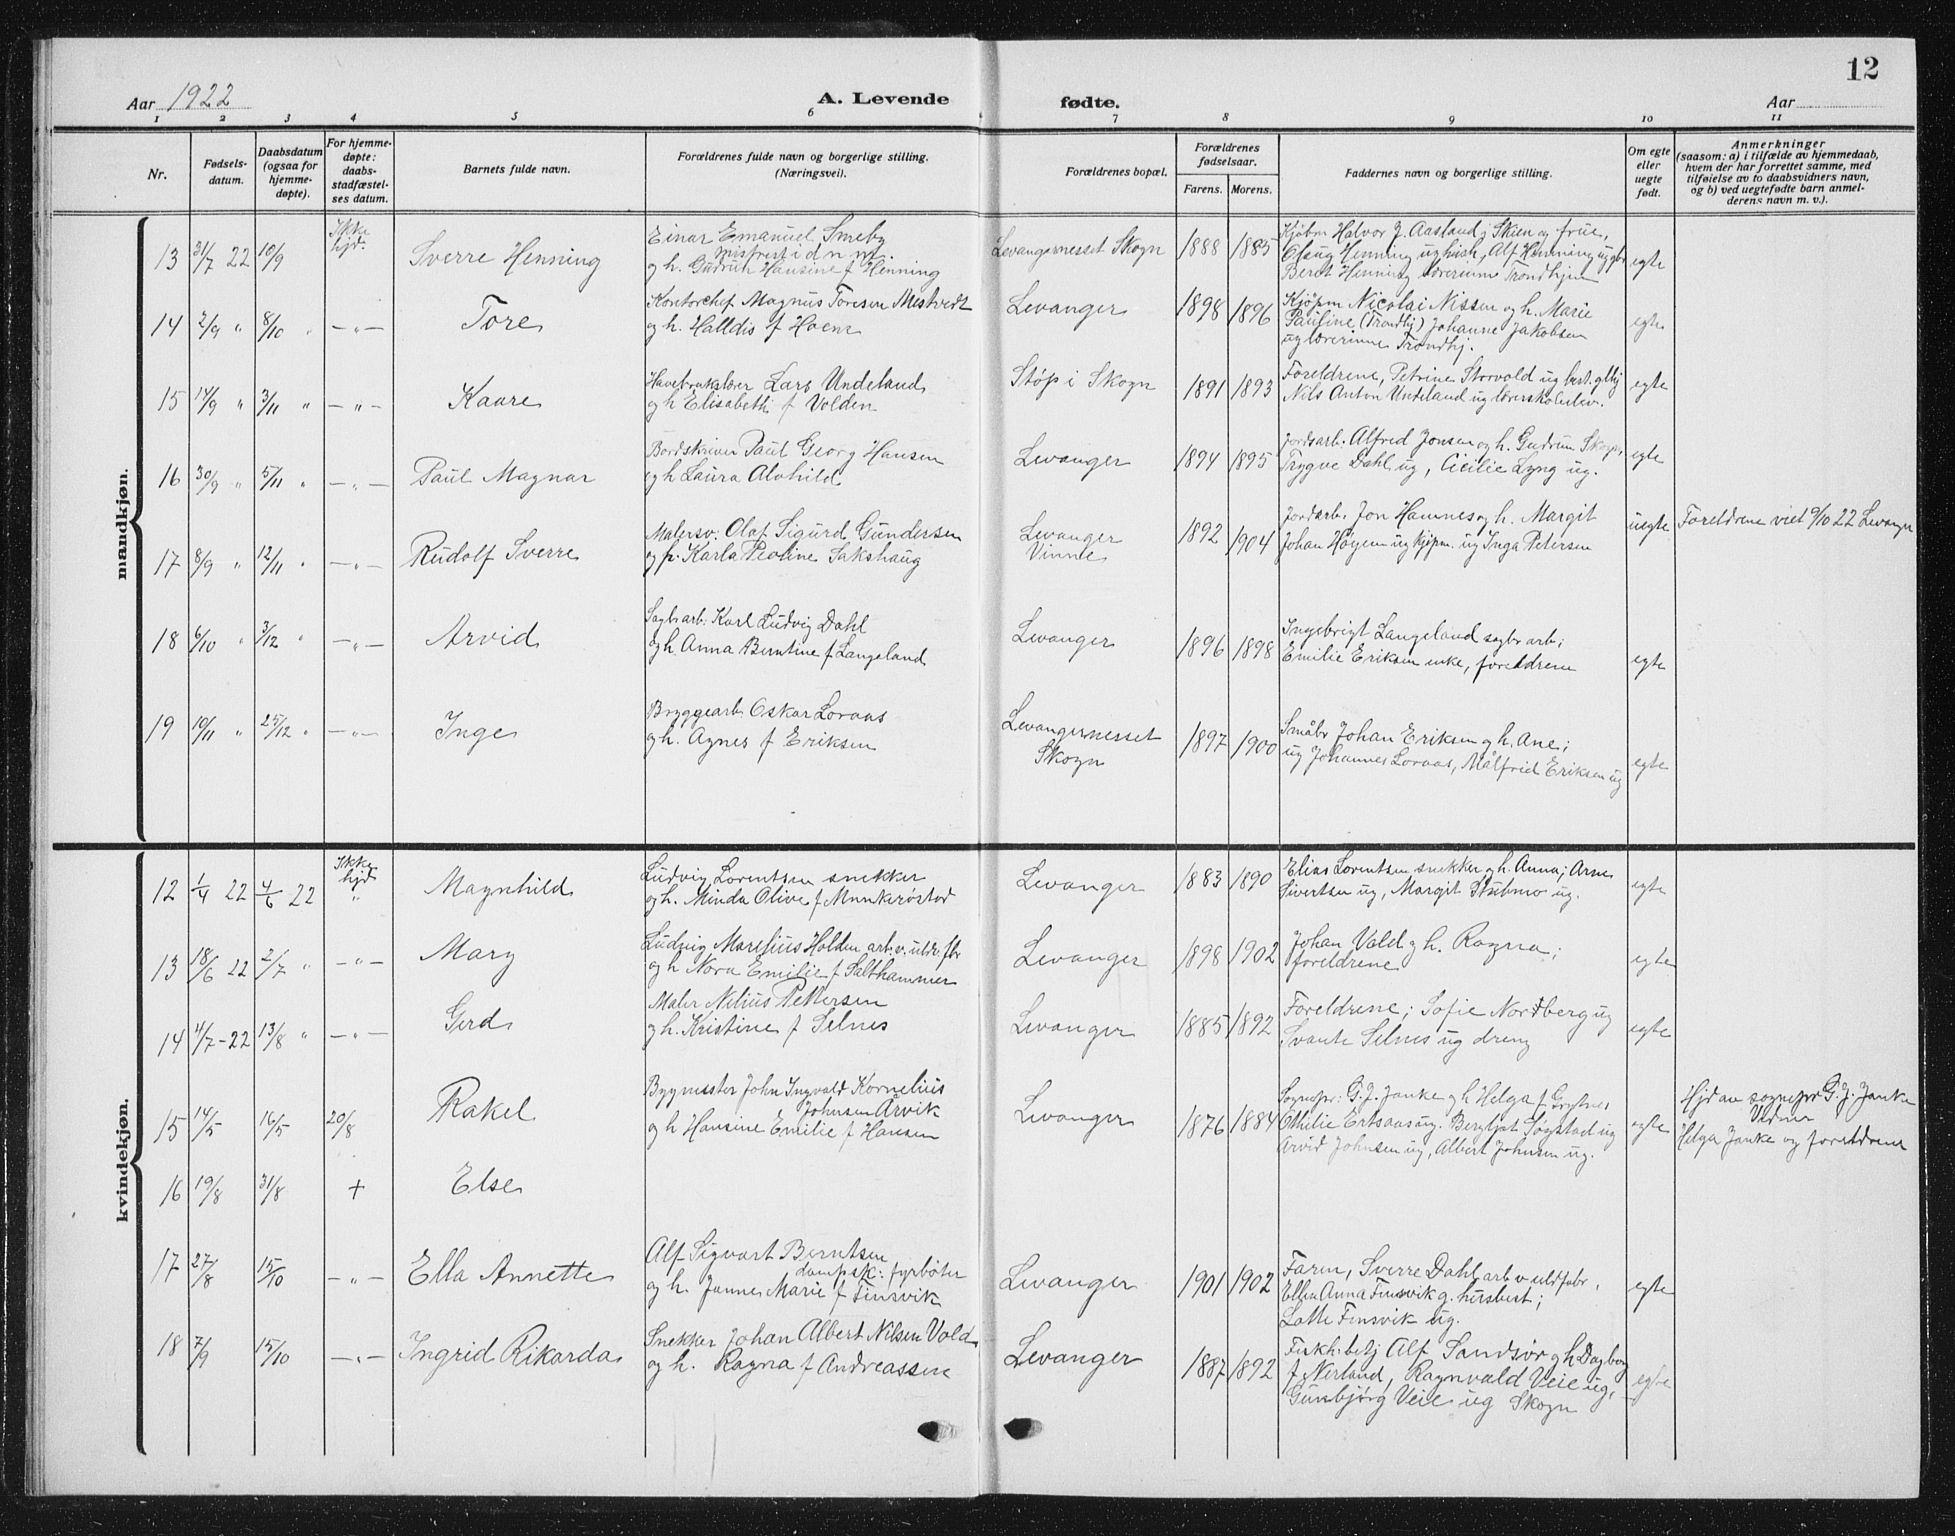 Aar 1922
A. Levende
fødte.
Aar
12
1 2 3 4 5 6 7 8 9 10 11
Nr.
Fødsels-
datum.
Daabsdatum
(ogsaa for
hjemme-
døpte).
For hjemme-
døpte:
daabs-
stadfæstel-
ses datum.
Barnets fulde navn.
Forældrenes fulde navn og borgerlige stilling.
(Næringsvei).
Forældrenes bopæl.
Forældrenes
fødselsaar.
Farens. Morens.
Faddernes navn og borgerlige stilling.
Om egte
eller
uegte
født.
Anmerkninger
(saasom: a) i tilfælde av hjemmedaab,
hvem der har forrettet samme, med
tilføielse av to daabsvidners navn,
og b) ved uegtefødte barn anmel-
derens navn m. v.).
mandkjøn.
13 31/7 22 10/9 Ikke hjd. Sverre Henning
Einar Emanuel Smeby
og h. Gudrun Hansine f Henning
Levangernesset Skogn 1888 1885
Kjøbm Halvor J. Aasland, Skien og frue,
Olaug Henning, Alf Henning
Berdt Henning lærerinne Trondhjem
egte
14 2/9 " 8/10 " -"- Tore
Kontorchef Magnus Toresen Mestvedt
og h. Halldis f Hoem
Levanger 1898 1896
Kjøpm Nicolai Nissen og h. Marie
Pauline (Trondhj) Johanne Jakobsen
ug lærerinne Trondhj.
egte
15 14/9 " 3/11 " -"- Kaare
Havebrukslærer Lars Undeland
og h Elisabeth f Volden
Støp i Skogn 1891 1893
Foreldrene, Petrine Storvold ug
Nils Anton Undeland ug lærerskoleelev.
egte
16 30/9 " 5/11 " -"- Paul Magnar
Bordskriver Paul Georg Hansen
og h Laura Alvhild
Levanger 1894 1895
Jordarb. Alfred Jonsen og h. Gudrun Skogn,
Trygve Dahl ug, Cicilie Lyng ug.
egte
17 8/9 " 12/11 " -"- Rudolf Sverre
Malersv: Olaf Sigurd Gundersen
og p. Karla Peoline Sakshaug
Levanger
Vinne
1892 1904
Jordarb. Jon Hamnes og h. Margit
Johan Høyem ug kjøpm. ug Inga Petersen
uegte
Foreldrene viet 9/10 22 Levanger
18 6/10 " 3/12 " -"- Arvid
Sagbr arb: Karl Ludvig Dahl
og h. Anna Berntine f Langeland
Levanger 1896 1898
Ingebrigt Langeland sagbr arb;
Emilie Eriksen enke, foreldrene
egte
19 10/11 " 25/12 " -"- Inge
Bryggearb Oskar Loraas
og h. Agnes f Eriksen
Levangernesset
Skogn
1897 1900
Småbr Johan Eriksen og h. Ane;
ug Johannes Loraas, Målfrid Eriksen ug
egte
kvindekjøn.
12 1/4 22 4/6 22 Ikke hjd " Magnhild
Ludvig Lorentsen snekker
og h. Minda Olive f Munkerøstad
Levanger 1883 1890
Elias Lorentsen snekker og h. Anna; Arne
Sivertsen ug, Margit Stubmo ug.
egte
13 18/6 22 2/7 " -"- Mary
Ludvig Marelius Holden arb. v. uldv. fbr
og h Nora Emilie f Salthammer
Levanger 1898 1902
Johan Vold og h. Ragna;
foreldrene
egte
14 4/7 - 22 13/8 " -"- Gerd
Maler Nilius Pettersen
og h. Kristine f Selnes
Levanger 1885 1892
Foreldrene; Sofie Nordberg ug
Svante Selnes ug dreng
egte
15 14/5 16/5 20/8 Rakel
Bygmester John Ingvald Kornelius
Johnsen Årvik
og h Hansine Emilie f Hansen
Levanger 1876 1884
Sognepr: G. J. Janke og h Helga f
Othilie Ertsaas ug. Bergljot Søgstad ug
Arvid Johnsen ug, Albert Johnsen ug.
egte
Hjd av sognepr G. J. Janke
Vidner
Helga Janke og foreldrene
16 19/8 31/8 + Else
17 27/8 15/10 -"- Ella Annette
Alf Sigvart Berntsen
dampsk: fyrbøter
og h. Janne Marie f Finsvik
Levanger 1901 1902
Faren, Sverre Dahl arb v uldfabr,
Ellen Anna Finsvik g. husbest;
Lotte Finsvik ug.
egte
18 7/9 15/10 -"- Ingrid Rikarda
Snekker Johan Albert Nilsen Vold
og h. Ragna f Andreassen
Levanger 1887 1892
Fiskh. betj Alf Sandsør og h Dagborg
f Nerland, Ragnvald Veie ug,
Gunbjørg Veie ug Skogn
egte